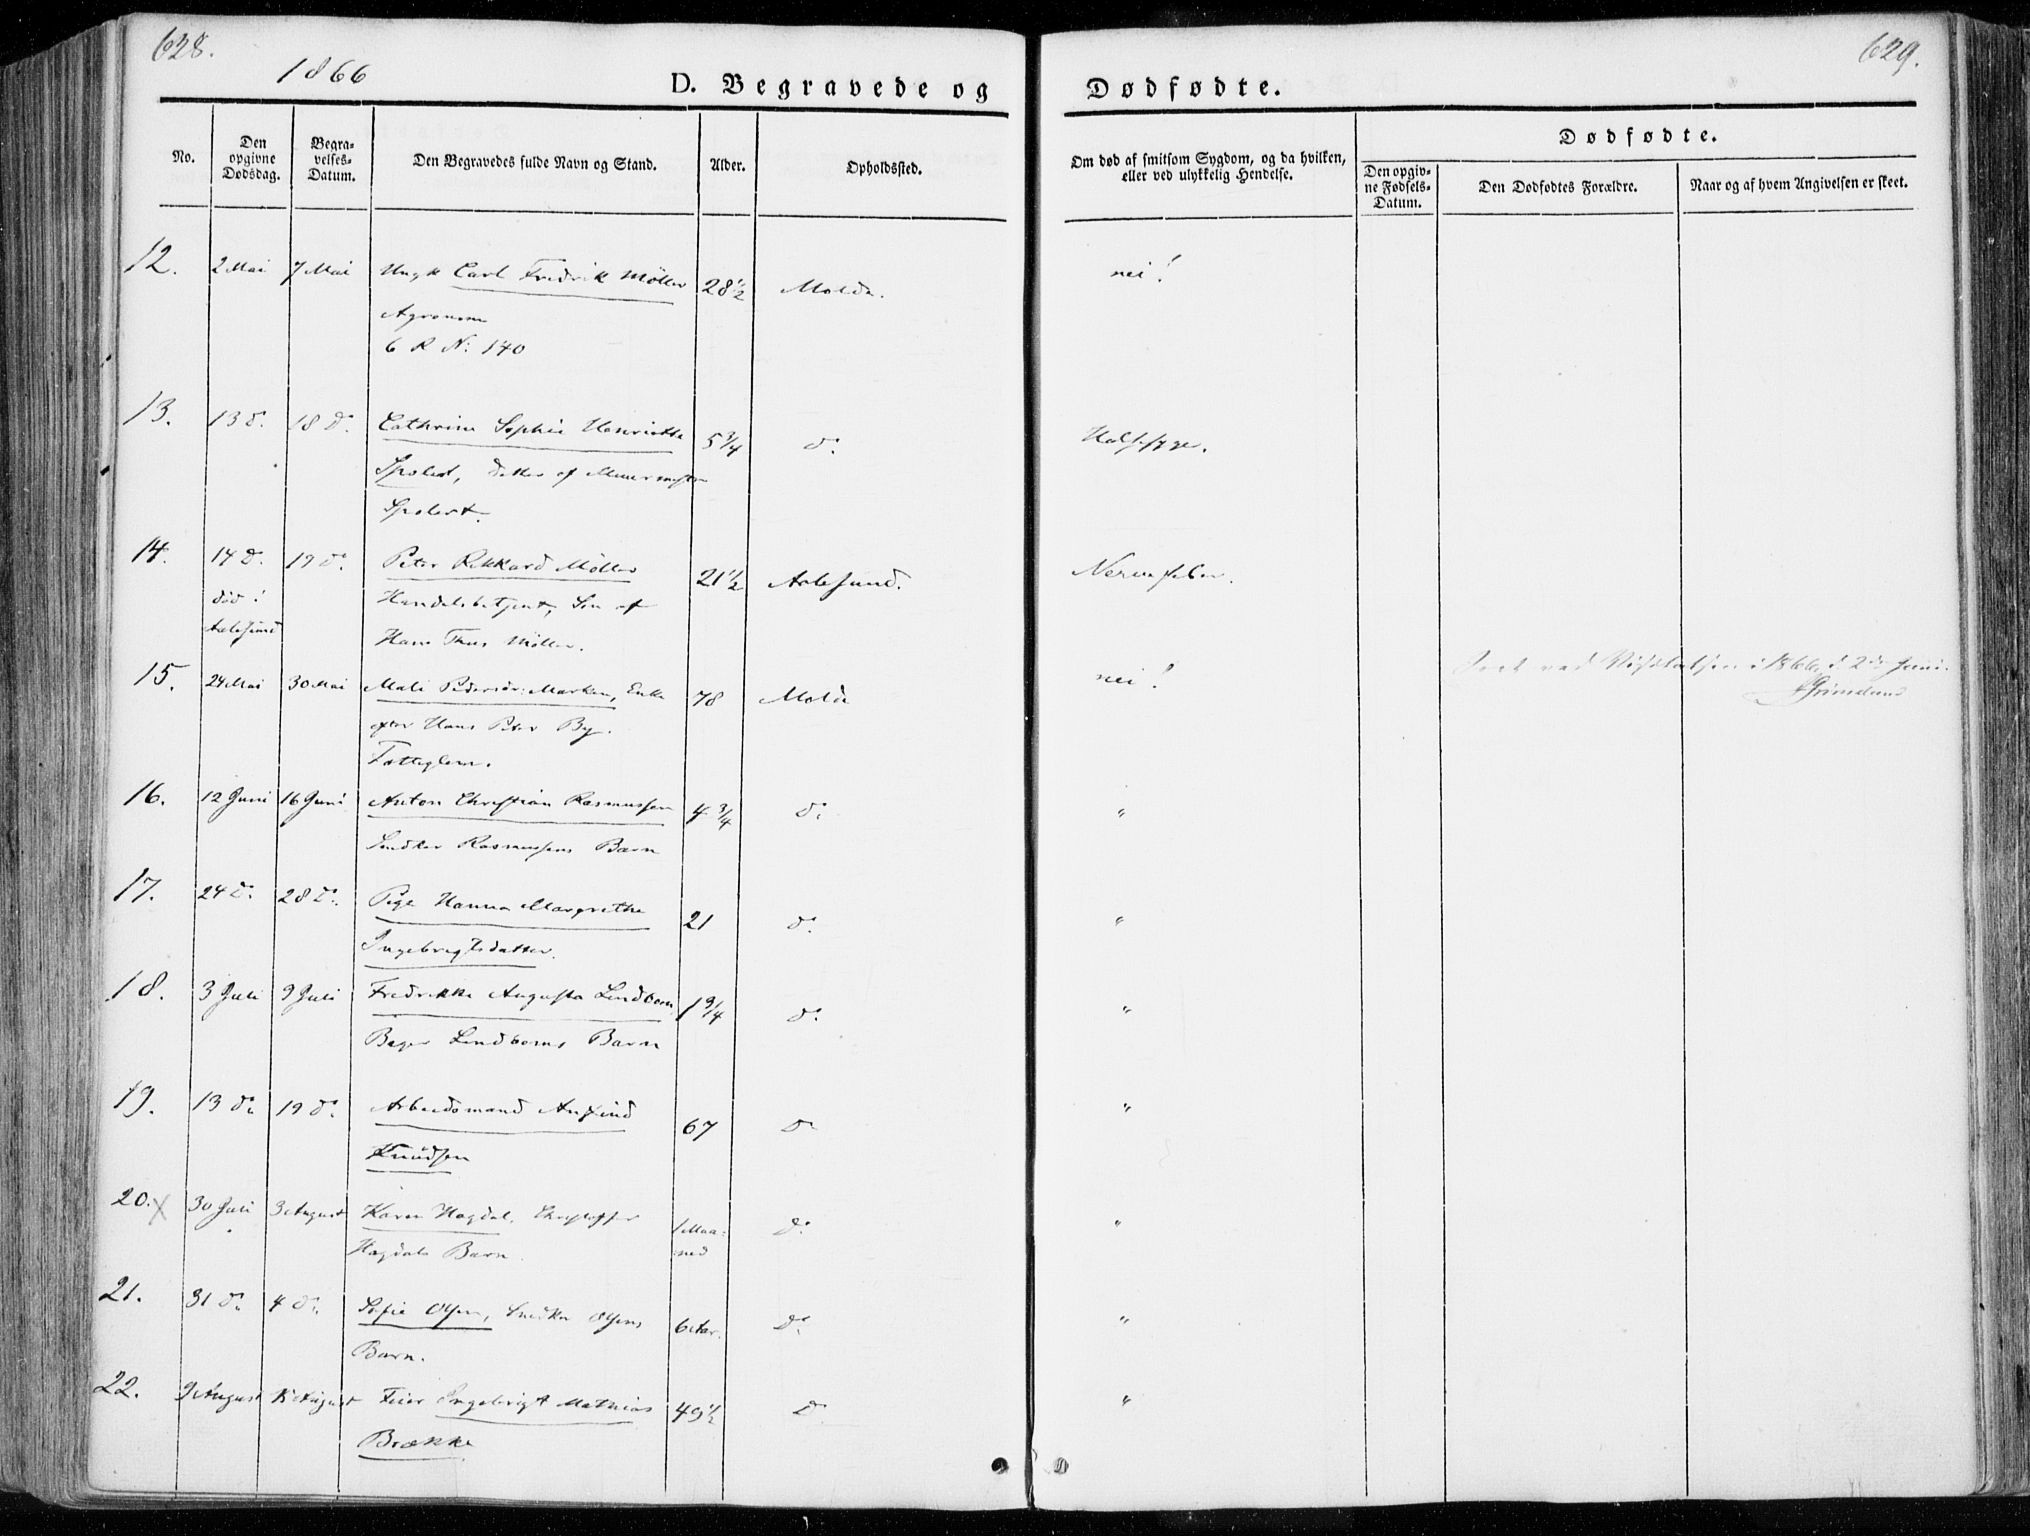 628.
1866
D. Begravede og
No.
Den opgivne Dødsdag.
Begravelses-Datum.
Den Begravedes fulde Navn og Stand.
Alder.
Opholdssted.
12. 2 Mai 7 Mai Ungk Carl Fredrik Møller 28½ Molde.
Agronom
6 R N: 140
13. 13 d. 18 do. Cathrine Sophie Henriette 5¾ do.
Spolert, datter af Muurmester
Spolert.
14. 14 d. 19 do. Peter Rikkard Møller 21½ Aalesund.
død i Handelsbetjent, Søn af
Aalesund Hans Thiis Møller.
15. 24 Mai 30 Mai Mali Pedersdr: Marken, Enke 78 Molde
efter Hans Peter By.
Fattiglem.
16. 12 Juni 16 Juni Anton Christian Rasmussen 4¾ do.
Snedker Rasmussens Barn
17. 24 do. 28 do. Pige Hanna Margrethe 21 do.
Ingebrigtsdatter.
18. 3 Juli 9 Juli Fredrikke Augusta Lindborn 1 9/4 do.
Bager Lindborns Barn
19. 13 do. 19 do. Arbeidsmand Anfind 67 do
Knudsen
20. x 30 Juli 3 August Karen Hagdal, Christoffer 1 Maaned do.
Hagdals Barn.
21. 31 do. 4 do. Sofie Olsen, Snedker Olsens 6 Aar. do.
Barn.
22. 9 August August Feier Ingebrigt Mathias 49½ do
Brække
629.
Dødfødte.
Om død af smitsom Sygdom, og da hvilken, eller ved ulykkelig Hendelse.
Dødfødte.
Den opgivne Fødsels-Datum.
Den Dødfødtes Forældre.
Naar og af hvem Angivelsen er skeet.
nei!
Halssyge.
Nervefeber.
nei!
Seet ved Visitatsen i 1866, d. 2den Juni.
Grimelund
"
"
"
"
"
"
"